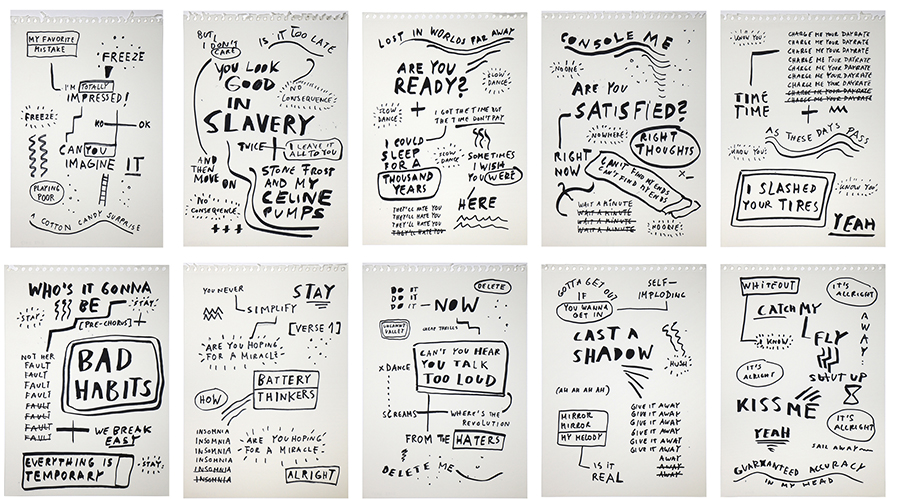 MY FAVORITE
MISTAKE
FREEZE
I'M TOTALLY
IMPRESSED!
FREEZE
NO
OK
CAN YOU
IMAGINE
IT
PLAYING
POOR
A COTTON CANDY SURPRISE
BUT
I DON'T
CARE
IS IT TOO LATE
YOU LOOK
GOOD
IN
SLAVERY
NO
CONSEQUENCE
TWICE
I LEAVE IT
ALL TO YOU
AND
THEN
MOVE ON
NO
CONSEQUENCE
STONE FROST
AND MY
CELINE
PUMPS
LOST IN WORLDS FAR AWAY
ARE YOU
READY?
SLOW
DANCE
SLOW
DANCE
I GOT THE TIME BUT
THE TIME DON'T PAY
I COULD
SLEEP
FOR A
THOUSAND
YEARS
SLOW
DANCE
SOMETIMES
I WISH
YOU WERE
HERE
THEY'LL HATE YOU
THEY'LL HATE YOU
THEY'LL HATE YOU
THEY'LL HATE YOU
CONSOLE ME
NO ONE
ARE YOU
SATISFIED?
NOWHERE
RIGHT
THOUGHTS
RIGHT
NOW
CAN'T FIND MY ENDS
CAN'T FIND MY ENDS
WAIT A MINUTE
WAIT A MINUTE
WAIT A MINUTE
WAIT A MINUTE
NO ONE
KNOW YOU
CHARGE ME YOUR DAYRATE
CHARGE ME YOUR DAYRATE
CHARGE ME YOUR DAYRATE
CHARGE ME YOUR DAYRATE
CHARGE ME YOUR DAYRATE
CHARGE ME YOUR DAYRATE
CHARGE ME YOUR DAYRATE
CHARGE ME YOUR DAYRATE
TIME
TIME
AS THESE DAYS PASS
KNOW YOU
I SLASHED
YOUR TIRES
KNOW YOU
YEAH
WHO'S IT GONNA
BE
STAY
STAY
[PRE-CHORUS]
NOT HER
FAULT
FAULT
FAULT
FAULT
FAULT
FAULT
FAULT
FAULT
BAD
HABITS
WE BREAK
EASY
EVERYTHING IS
TEMPORARY
STAY
YOU NEVER
SIMPLIFY
STAY
[VERSE 1]
ARE YOU HOPING
FOR A MIRACLE
BATTERY
THINKERS
HOW
INSOMNIA
INSOMNIA
INSOMNIA
INSOMNIA
INSOMNIA
ARE YOU HOPING
FOR A MIRACLE
ALRIGHT
DO IT
DO IT
DO IT
NOW
DELETE
UNCANNY
VALLEY
CHEAP THRILLS
CAN'T YOU HEAR
YOU TALK
TOO LOUD
X DANCE
SCREAMS
WHERE'S THE
REVOLUTION
FROM THE HATERS
DELETE ME
GOTTA GET OUT
IF
YOU WANNA
GET IN
SELF-
IMPLODING
CAST A
SHADOW
HUSH
(AH AH AH AH)
MIRROR
MIRROR
MY MELODY
GIVE IT AWAY
GIVE IT AWAY
GIVE IT AWAY
GIVE IT AWAY
GIVE IT AWAY
GIVE IT AWAY
AWAY
AWAY
IS IT
REAL
WHITEOUT
IT'S
ALLRIGHT
CATCH MY
FLY
AWAY
I KNOW
IT'S
ALRIGHT
SHUT UP
KISS ME
IT'S
ALLRIGHT
YEAH
SAIL AWAY
GUARANTEED ACCURACY
IN MY HEAD